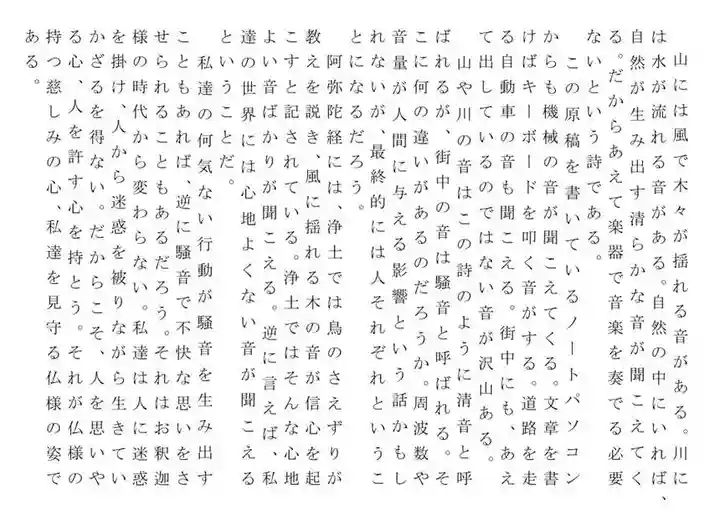 山には風で木々が揺れる音がある。川に
は水が流れる音がある。自然の中にいれば、
自然が生み出す清らかな音が聞こえてく
る。だからあえて楽器で音楽を奏でる必要
ないという詩である。
　この原稿を書いているノートパソコン
からも機械の音が聞こえてくる。文章を書
けばキーボードを叩く音がする。道路を走
る自動車の音も聞こえる。街中にも、あえ
て出しているのではない音が沢山ある。
　山や川の音はこの詩のように清音と呼
ばれるが、街中の音は騒音と呼ばれる。そ
こに何の違いがあるのだろうか。周波数や
音量が人間に与える影響という話かもし
れないが、最終的には人それぞれというこ
とになるだろう。
　阿弥陀経には、浄土では鳥のさえずりが
教えを説き、風に揺れる木の音が信心を起
こすと記されている。浄土ではそんな心地
よい音ばかりが聞こえる。逆に言えば、私
達の世界には心地よくない音が聞こえる
ということだ。
　私達の何気ない行動が騒音を生み出す
こともあれば、逆に騒音で不快な思いをさ
せられることもあるだろう。それはお釈迦
様の時代から変わらない。私達は人に迷惑
を掛け、人から迷惑を被りながら生きてい
かざるを得ない。だからこそ、人を思いや
る心、人を許す心を持とう。それが仏様の
持つ慈しみの心、私達を見守る仏様の姿で
ある。